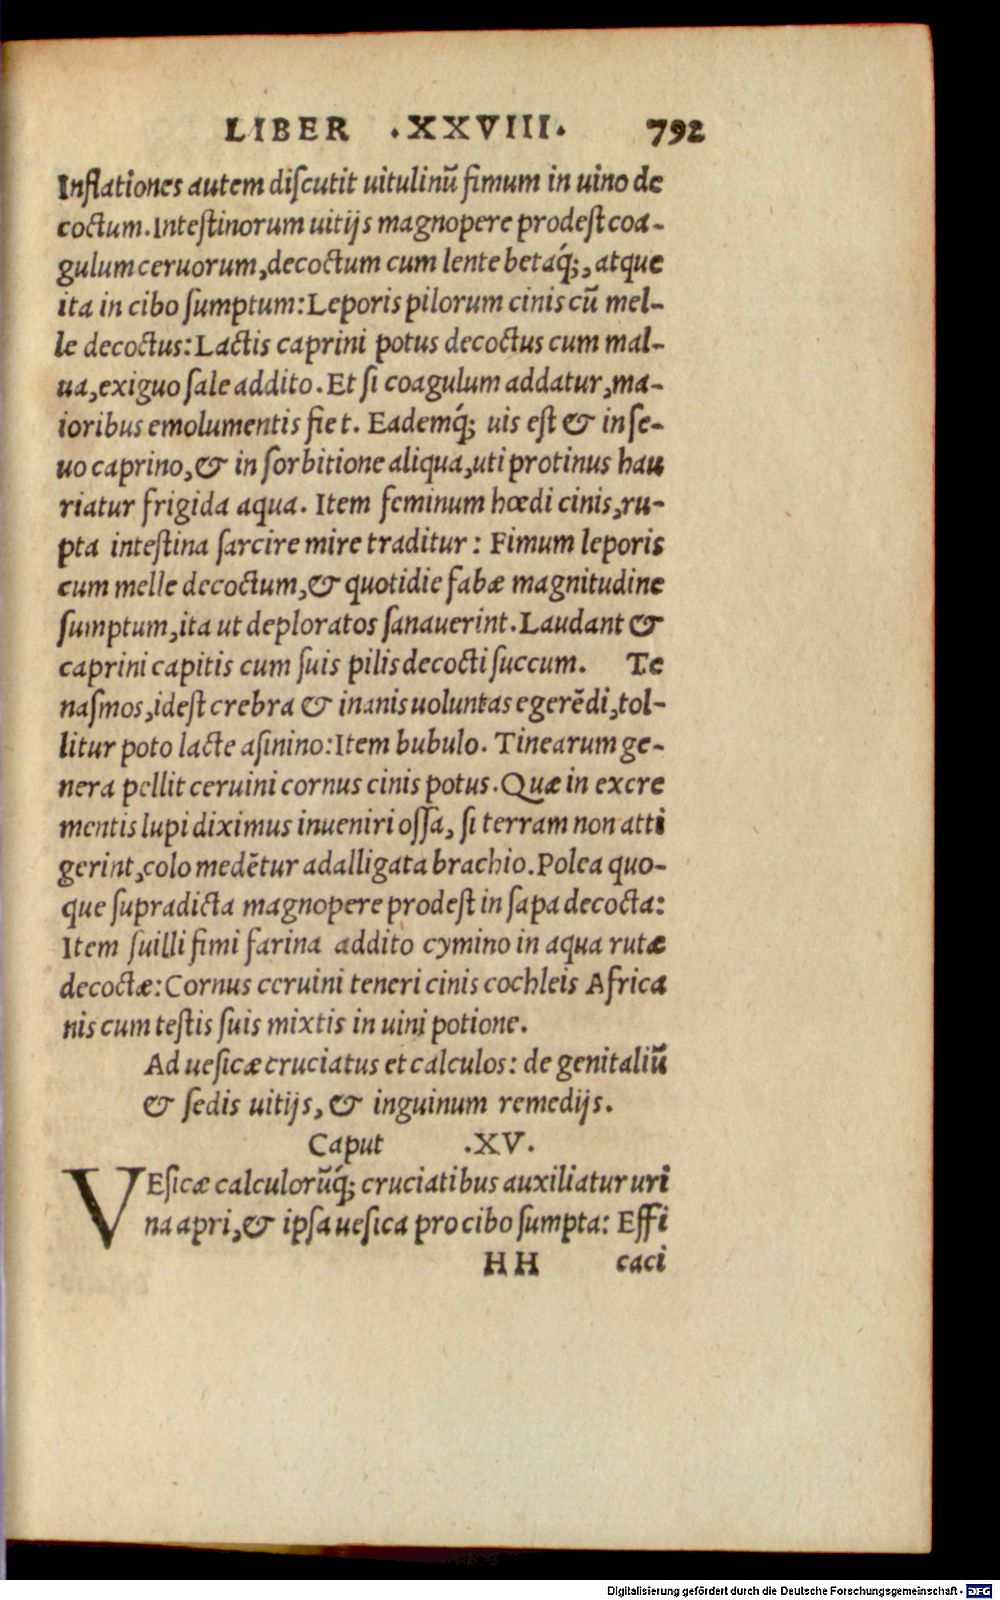 LIBER .XXVIII. 792
Inflationes autem diſcutit uitulinū fimum in uino de
coctum. Inteſtinorum uitijs magnopere prodeſt coa-
gulum ceruorum, decoctum cum lente betaq́;, atque
ita in cibo ſumptum: Leporis pilorum cinis cū mel-
le decoctus: Lactis caprini potus decoctus cum mal-
ua, exiguo ſale addito. Et ſi coagulum addatur, ma-
ioribus emolumentis fiet. Eademq́; uis eſt & in ſe-
uo caprino, & in ſorbitione aliqua, uti protinus hau
riatur frigida aqua. Item feminum hœdi cinis, ru-
pta inteſtina ſarcire mire traditur: Fimum leporis
cum melle decoctum, & quotidie fabæ magnitudine
ſumptum, ita ut deploratos ſanauerint. Laudant &
caprini capitis cum ſuis pilis decocti ſuccum. Te
naſmos, ideſt crebra & inanis uoluntas egerēdi, tol-
litur poto lacte aſinino: Item bubulo. Tinearum ge-
nera pellit ceruini cornus cinis potus. Quæ in excre
mentis lupi diximus inueniri oſſa, ſi terram non atti
gerint, colo medētur adalligata brachio. Polea quo-
que ſupradicta magnopere prodeſt in ſapa decocta:
Item ſuilli fimi farina addito cymino in aqua rutæ
decoctæ: Cornus ceruini teneri cinis cochleis Africa
nis cum teſtis ſuis mixtis in uini potione.
Ad ueſicæ cruciatus et calculos: de genitaliū
& ſedis uitijs, & inguinum remedijs.
Caput .XV.
VEſicæ calculorūq́; cruciatibus auxiliatur uri
na apri, & ipſa ueſica pro cibo ſumpta: Effi
HH caci
Digitalisierung gefördert durch die Deutsche Forschungsgemeinschaft - DFG